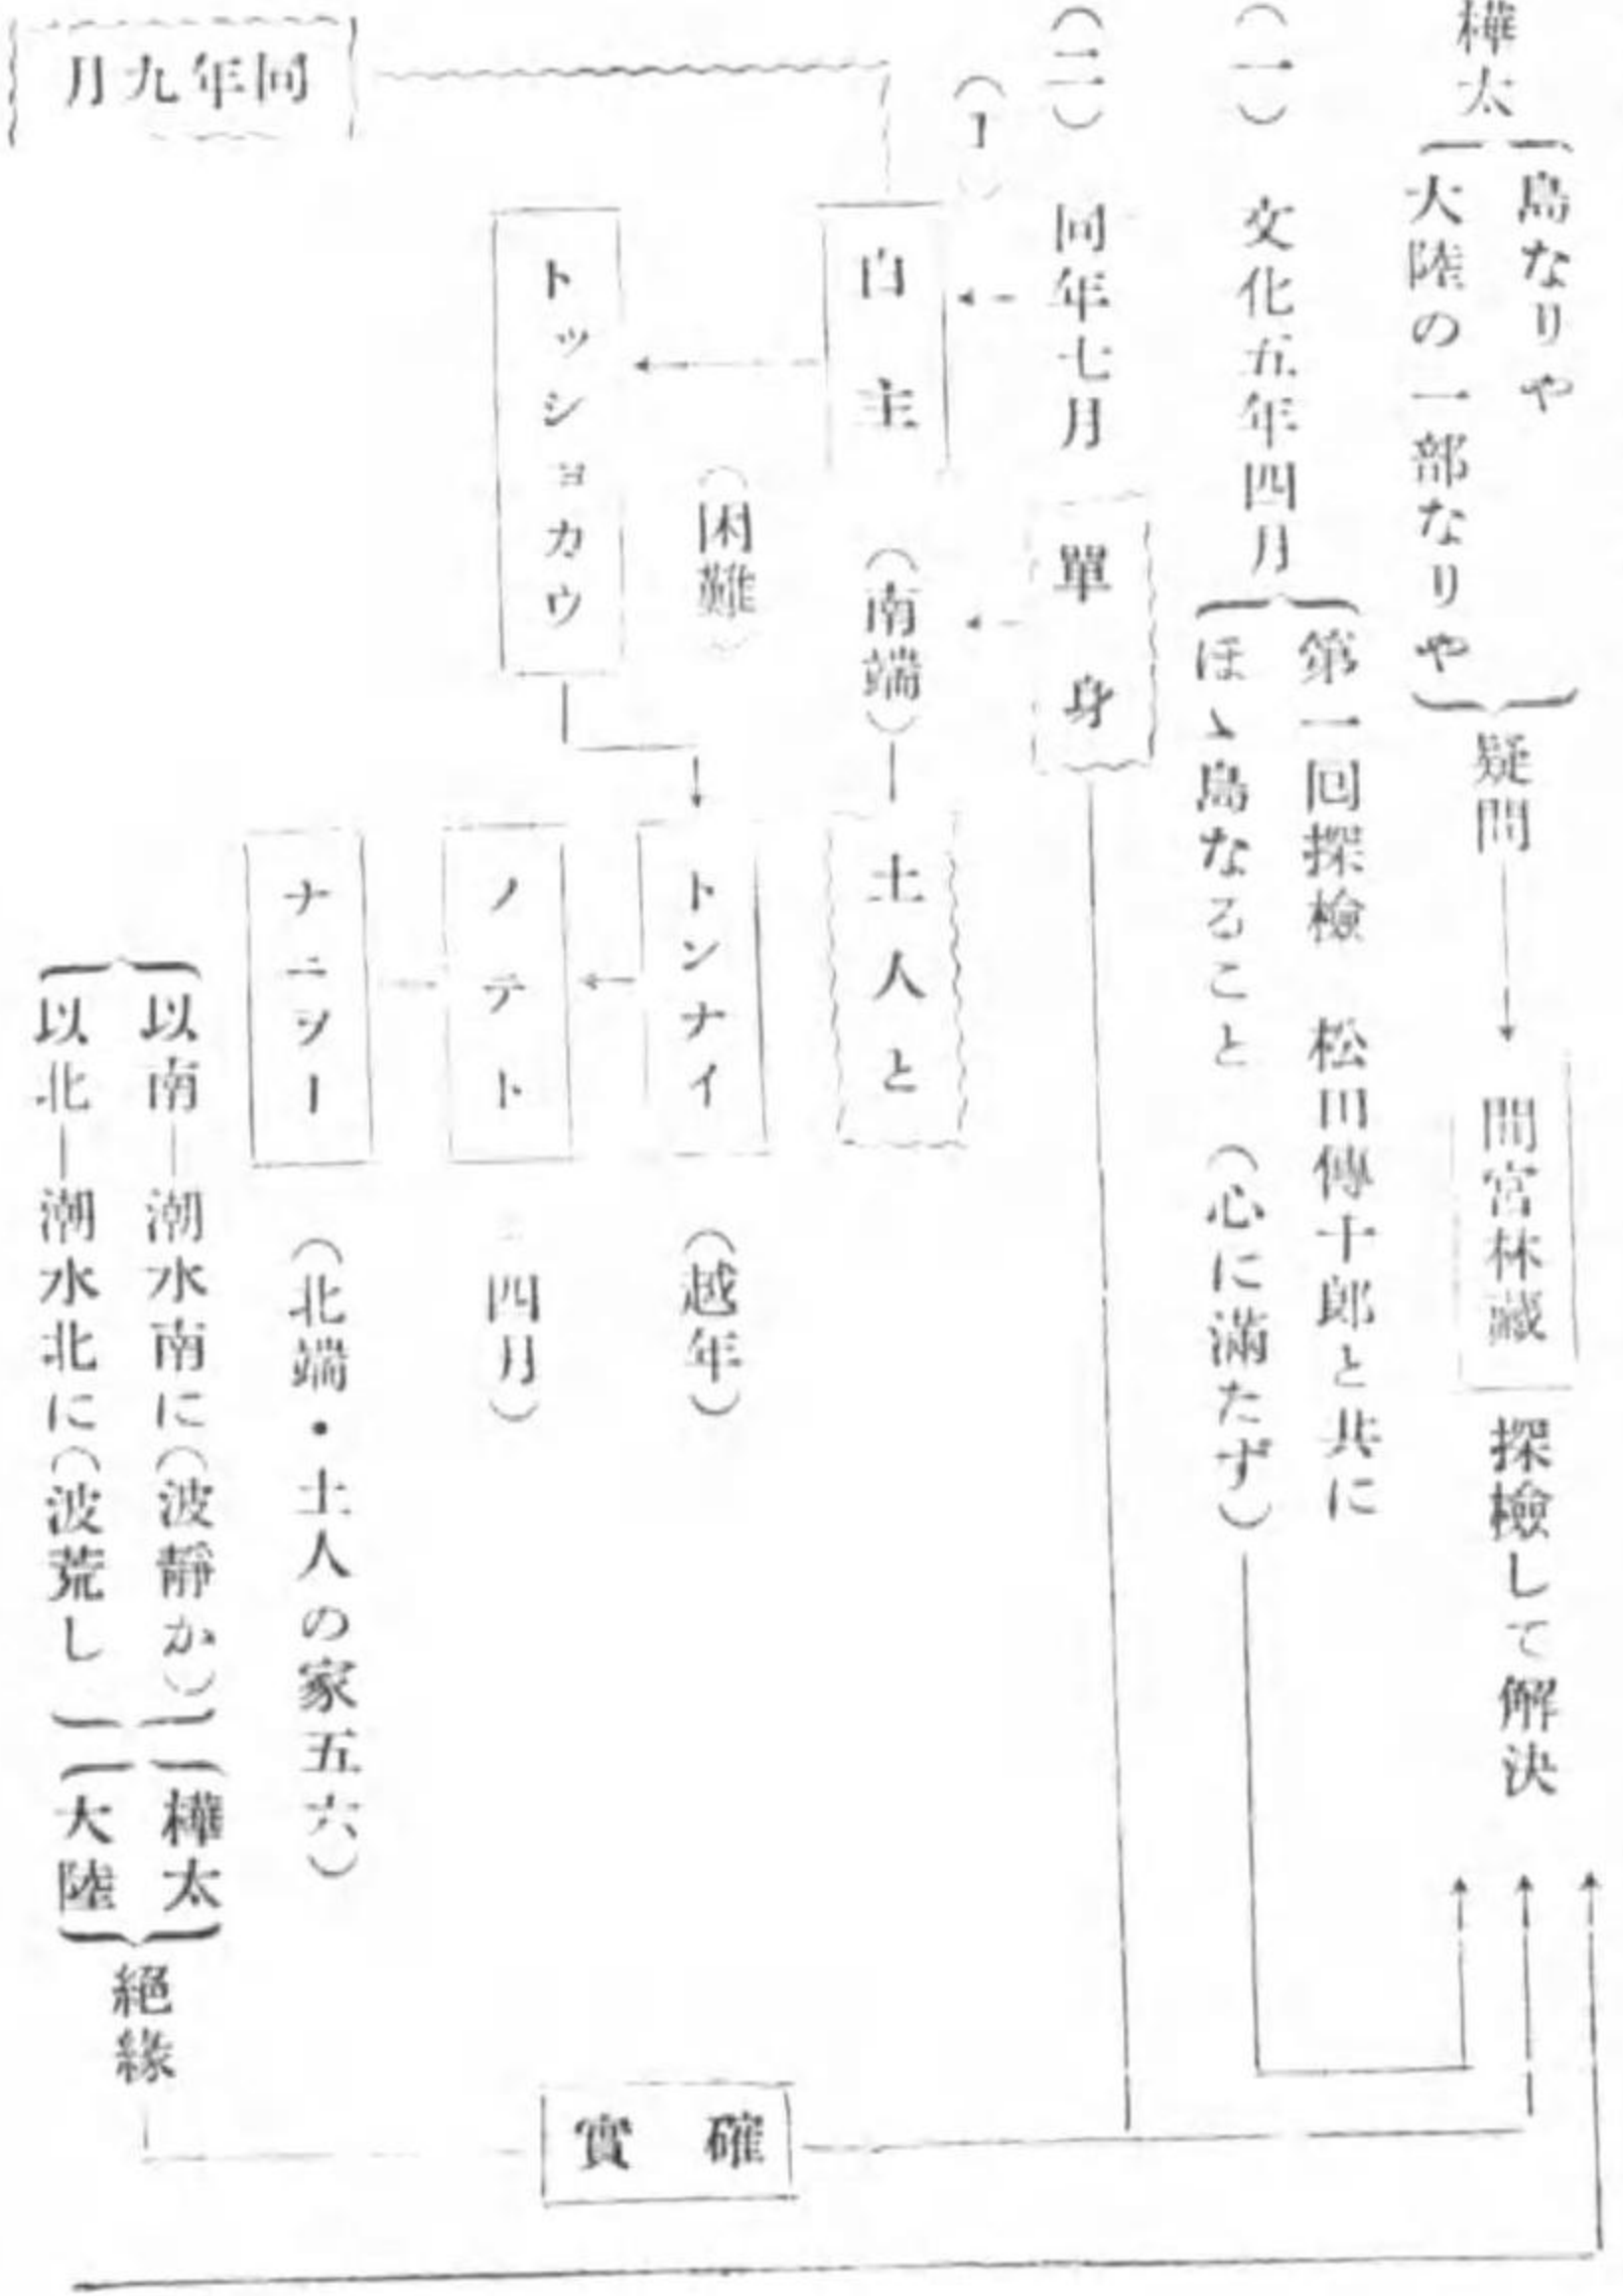 樺太
島なりや
大陸の一部なりや
疑問
間宮林藏
探檢して解決
(一) 文化五年四月
第一回探檢 松田傳十郎と共に
ほゞ島なること (心に滿たず)
(二) 同年七月
單身
(1)
白主
(南端)
土人と
(困難)
トッショカウ
トンナイ
(越年)
ノテト
四月)
ナニヲー
(北端・土人の家五六)
以南―潮水南に(波靜か)
以北―潮水北に(波荒し
樺太
大陸
絕緣
確實
同年九月